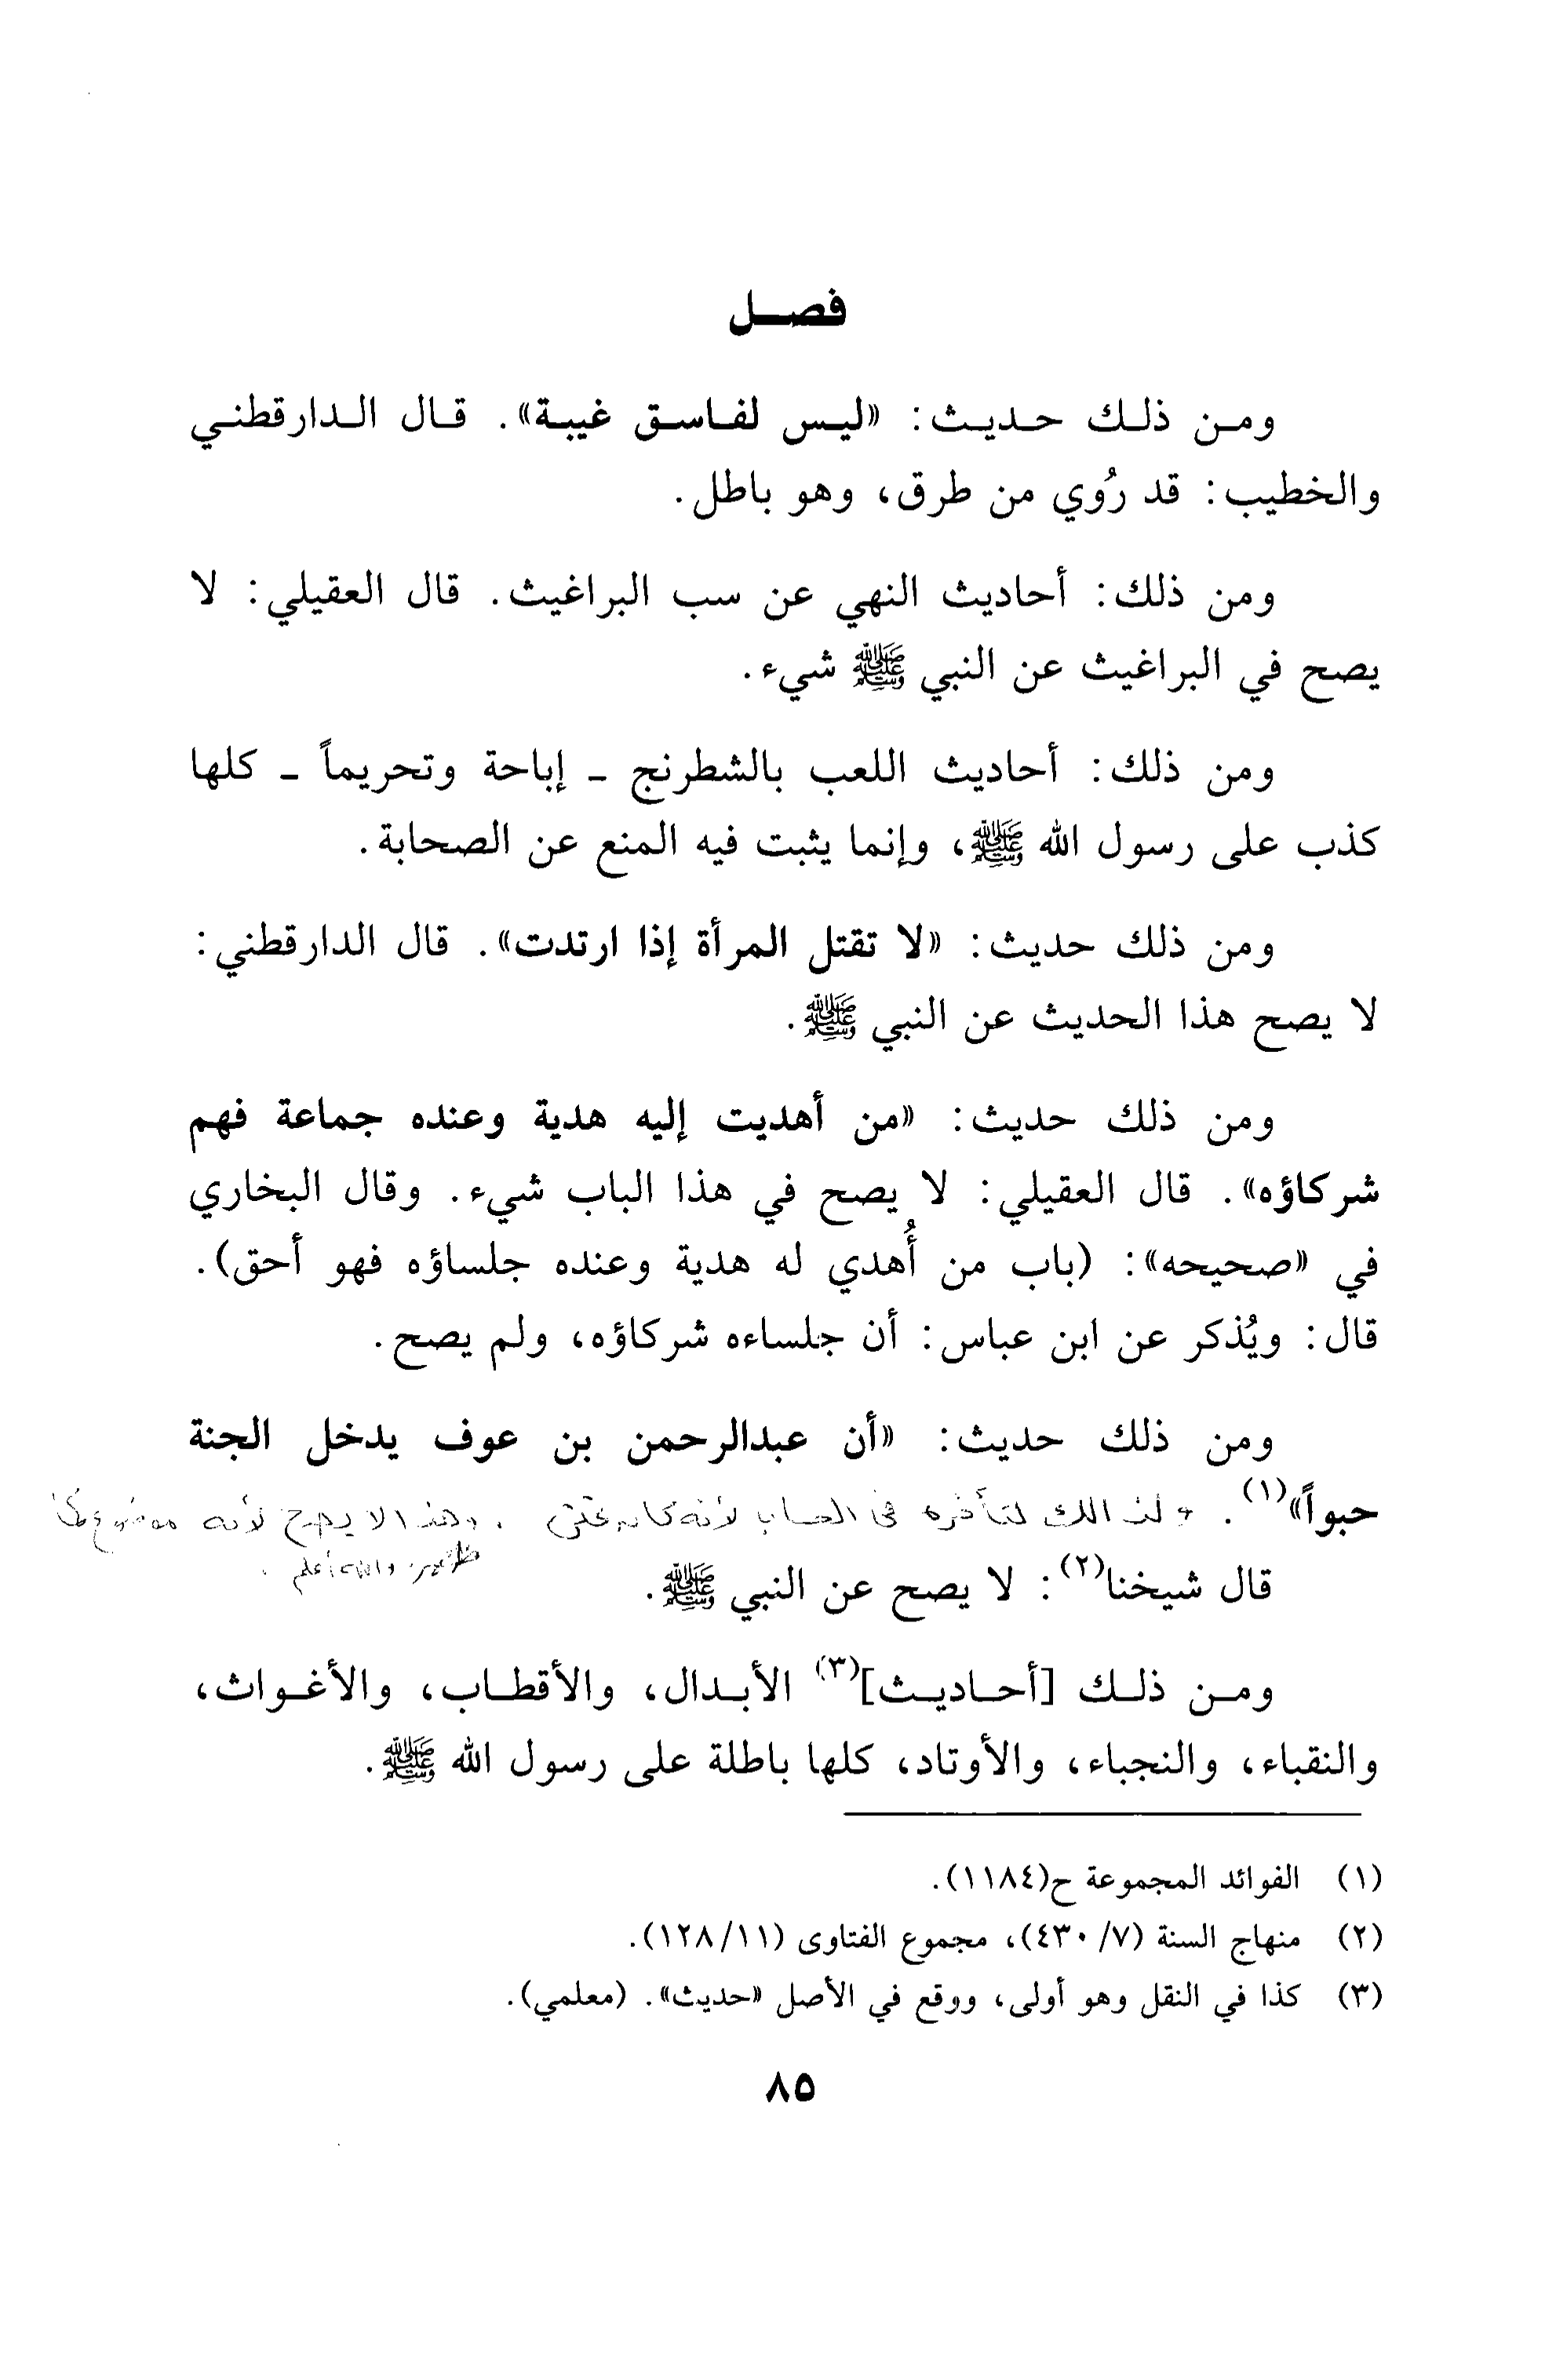 فصل
ومن ذلك حديث: «ليس لفاسق غيبة». قال الدارقطني
والخطيب: قد رُوي من طرق، وهو باطل.
ومن ذلك: أحاديث النهي عن سب البراغيث. قال العقيلي: لا
يصح في البراغيث عن النبي ﷺ شيء.
ومن ذلك: أحاديث اللعب بالشطرنج - إباحة وتحريماً - كلها
كذب على رسول الله ﷺ، وإنما يثبت فيه المنع عن الصحابة.
ومن ذلك حديث: «لا تقتل المرأة إذا ارتدت». قال الدارقطني:
لا يصح هذا الحديث عن النبي ﷺ.
ومن ذلك حديث: «من أهديت إليه هدية وعنده جماعة فهم
شركاؤه». قال العقيلي: لا يصح في هذا الباب شيء. وقال البخاري
في «صحيحه»: (باب من أُهدي له هدية وعنده جلساؤُه فهو أحق).
قال: ويُذكر عن ابن عباس: أن جلساءه شركاؤه، ولم يصح.
ومن ذلك حديث: «أن عبدالرحمن بن عوف يدخل الجنة
حبواً»(١). لتأخره في الحساب لأنه كان. وهذا لا يصح لأنه موضوع
والله أعلم.
قال شيخنا(٢): لا يصح عن النبي ﷺ.
ومن ذلك [أحاديث](٣) الأبدال، والأقطاب، والأغواث،
والنقباء، والنجباء، والأوتاد، كلها باطلة على رسول الله ﷺ.
(١) الفوائد المجموعة ح(١١٨٤).
(٢) منهاج السنة (٧/ ٤٣٠)، مجموع الفتاوى (١١/ ١٢٨).
(٣) كذا في النقل وهو أولى، ووقع في الأصل «حديث». (معلمي).
٨٥